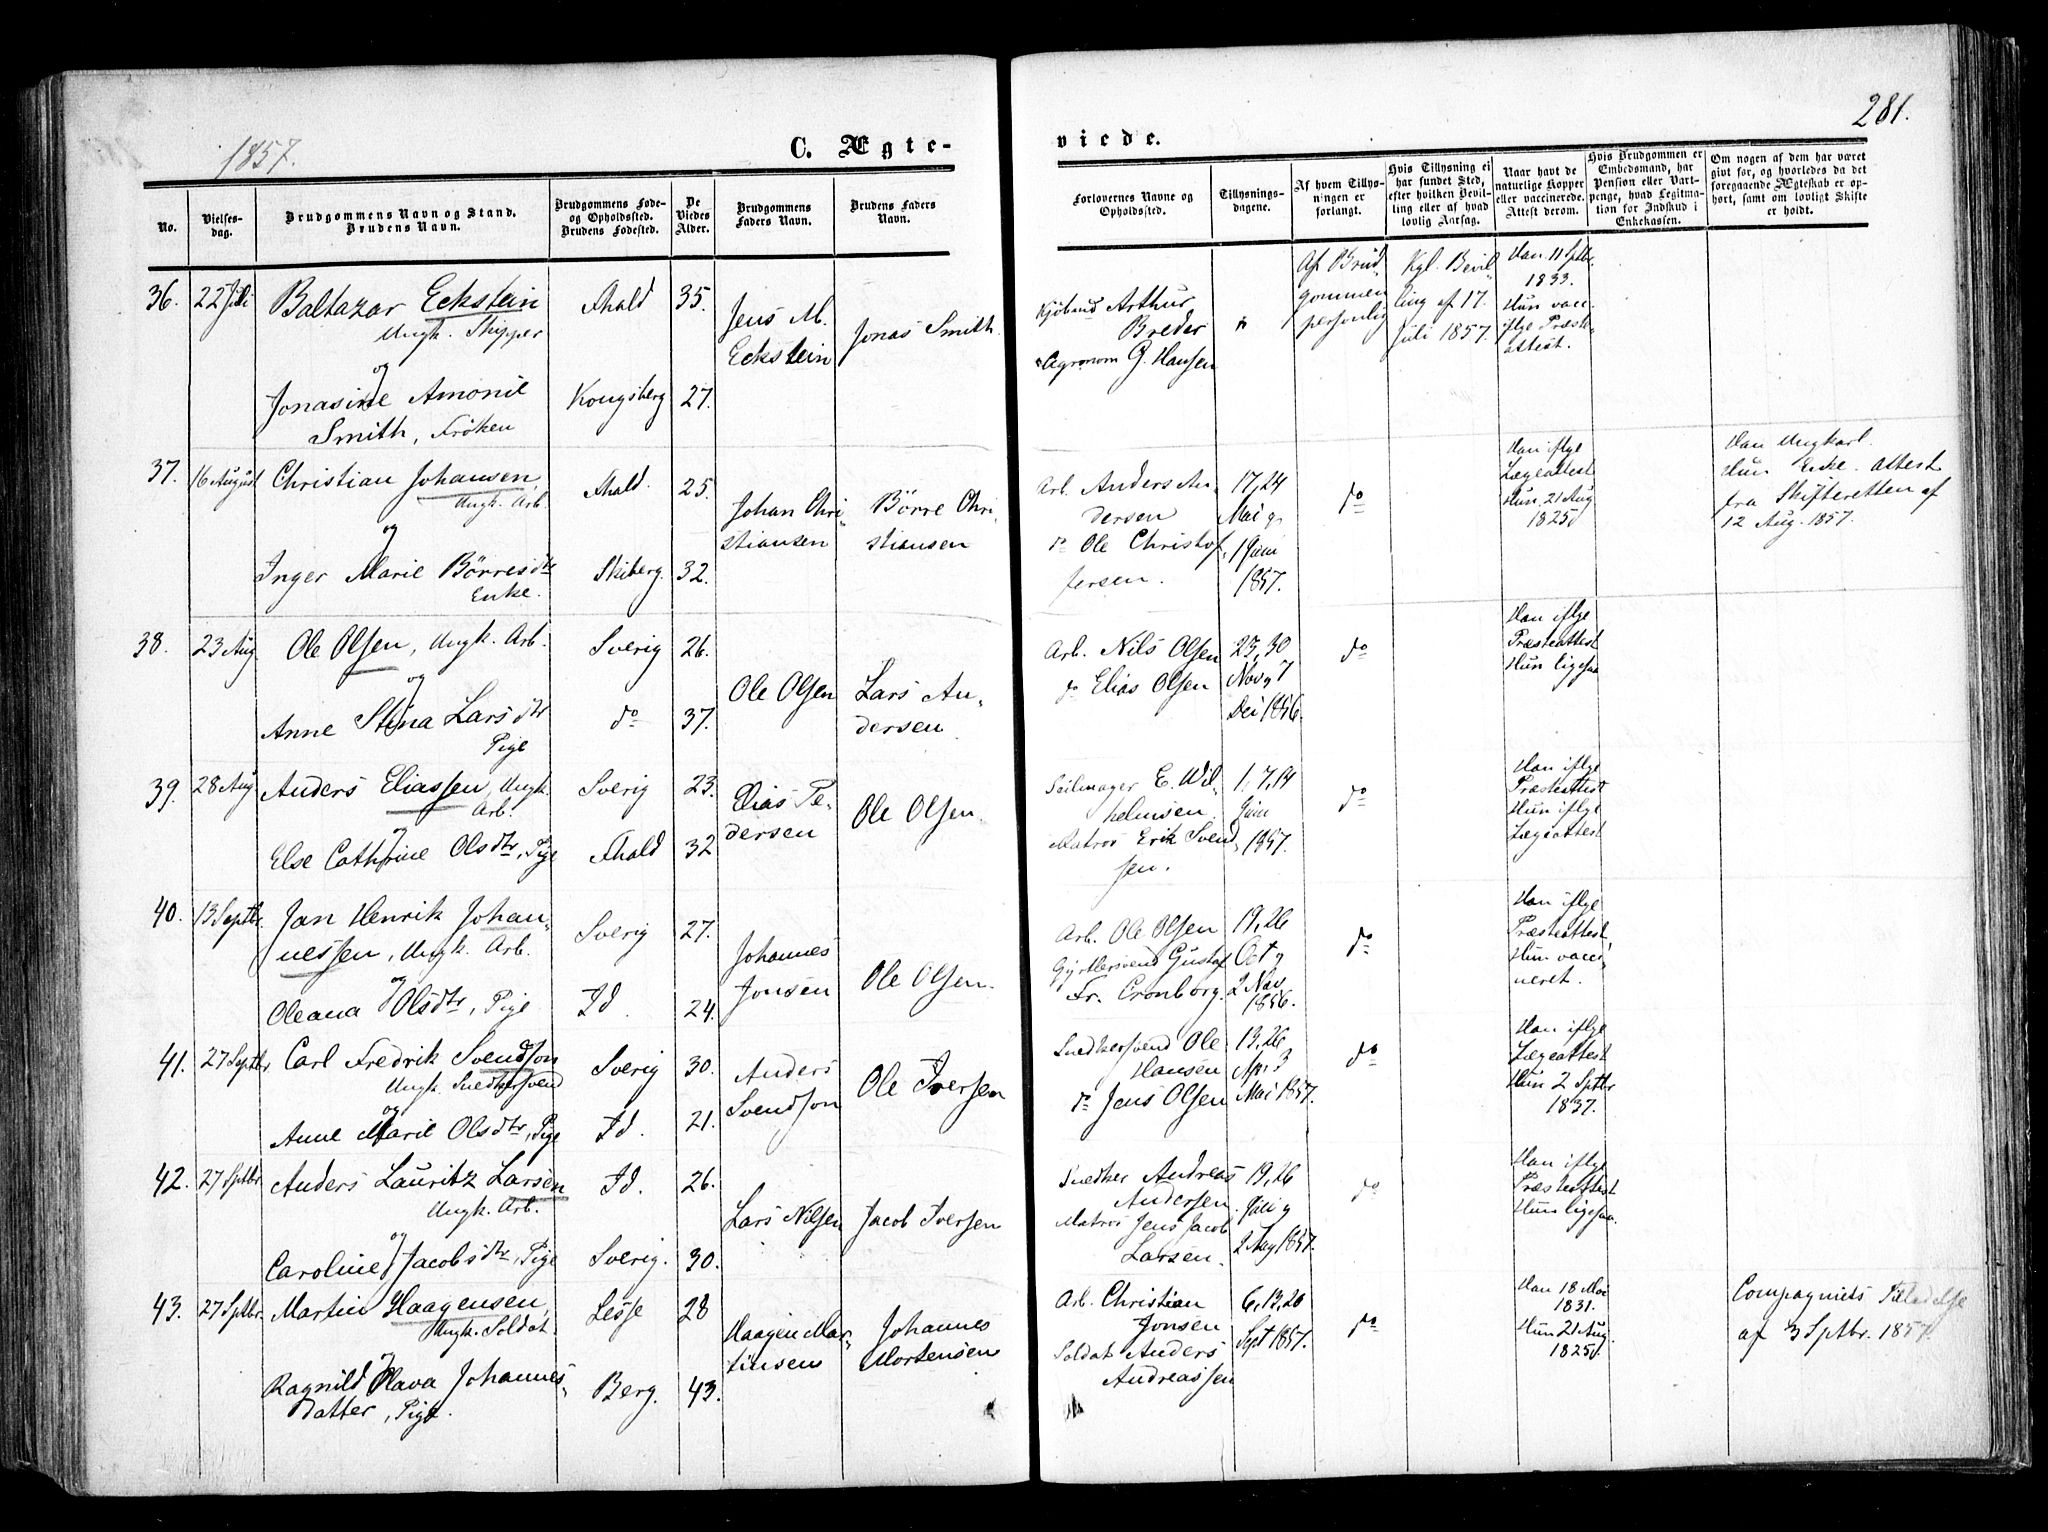 1857.
281.
C. Ægte-
viede.
No.
Vielses-
dag.
Brudgommens Navn og Stand.
Brudens Navn.
Brudgommens Føde-
og Opholdssted.
Brudens Fødested.
De
Viedes
Alder.
Brudgommens
Faders Navn.
Brudens Faders
Navn.
Forlovernes Navne og
Opholdssted.
Tillysnings-
dagene.
Af hvem Tillys-
ningen er
forlangt.
Hvis Tillysning ei
har fundet Sted,
efter hvilken Bevil-
ling eller af hvad
lovlig Aarsag.
Naar havt de
naturlige Kopper
eller vaccinerede.
Attest derom.
Hvis Brudgommen er
Embedsmand, har
Pension eller Vart-
penge, hvad Legitma-
tion for Indskud i
Enkekassen.
Om nogen af dem har været
givt før, og hvorledes da det
foregaaende Ægteskab er op-
hørt, samt om lovligt Skifte
er holdt.
36. 22 Juli Baltazar Eckstein
Ungk. Skipper
og
Jonasine Amonie
Smith, Frøken
Fhald 35.
Kongsberg 27.
Jens M.
Eckstein
Jonas Smith
Kjøbmd Arthur
Breder
Agronom G. Hansen
Af Brud-
gommen
personlig
Kgl. Bevil-
ling af 17.
Juli 1857.
Han 11 Sptbr.
1833.
Hun vacc.
iflge Præste-
attest.
37. 16 August Christian Johansen,
Ungk. Arb.
og
Inger Marie Börresdtr
Enke.
Fhald. 25.
Skiberg. 32.
Johan Chri-
stiansen
Börre Chri-
stiansen
Arb. Anders An-
dersen
do Ole Christof-
fersen.
17, 24
Mai og
1 Juni
1857.
do
Han iflge
Lægeattest
Hun 21 Aug
1825
Han Ungkarl.
Hun Enke. Attest
fra Skifteretten af
12 Aug. 1857.
38. 23 Aug Ole Olsen, Ungk. Arb.
og
Anne Stina Larsdtr
Pige
Sverig 26.
do 37.
Ole Olsen
Lars An-
dersen
Arb. Nils Olsen
do Elias Olsen
23, 30
Nov og 7
Dec 1856.
do
Han iflge
Præsteattest
Hun ligesaa
39. 28 Aug. Anders Eliassen, Ungk.
Arb.
og
Else Cathrine Olsdtr, Pige
Sverig 23.
Fhald 32
Elias Pe-
dersen
Ole Olsen.
Seilmager E. Wil-
helmsen.
Matros Erik Svend-
sen.
1, 7, 14
Juni
1857.
do
Han iflge
Præsteattest
Hun iflge
Lægeattest
40. 13 Septbr. Jan Henrik Johan-
nessen, Ungk. Arb.
og
Oleana Olsdtr, Pige
Sverig 27.
Id. 24.
Johannes
Jonsen
Ole Olsen.
Arb. Ole Olsen
Gjørtlersvend Gustaf
Fr. Cronborg.
19, 26
Oct og
2 Nov
1856.
do
Han iflge
Præsteattest,
Hun vacci-
neret.
41. 27 Septbr. Carl Fredrik Svendson
Ungk. Snedkersvend
og
Anne Marie Olsdtr, Pige
Sverig 30.
Id. 21.
Anders
Svendson
Ole Iversen
Snedkersvend Ole
Hansen
do Jens Olsen
19, 26
Apr. 3
Mai 1857.
do
Han iflge
Lægeattest
Hun 2 Sptbr
1837.
42. 27 Sptbr. Anders Lauritz Larsen
Ungk. Arb.
og
Caroline Jacobsdtr, Pige
Id. 26.
Sverig. 30.
Lars Nilsen
Jacob Iversen
Snedker Andreas
Andersen.
Matros Jens Jacob
Larsen.
19, 26
Juli og
2 Aug 1857.
do
Han iflge
Præsteattest
Hun ligesaa.
43. 27 Sptbr. Martin Haagensen,
Ungk. Soldat.
og
Ragnild Olava Johannes-
datter, Pige.
Lesje 28
Berg. 43.
Haagen Mar-
tinsens
Johannes
Mortensens
Arb. Christian
Jonsen
Soldat Anders
Andreassen
6, 13, 20
Sept 1857.
do
Han 18 Mai
1831.
Hun 21 Aug.
1825.
Compagniets Tilladelse
af 3 Sptbr. 1857.